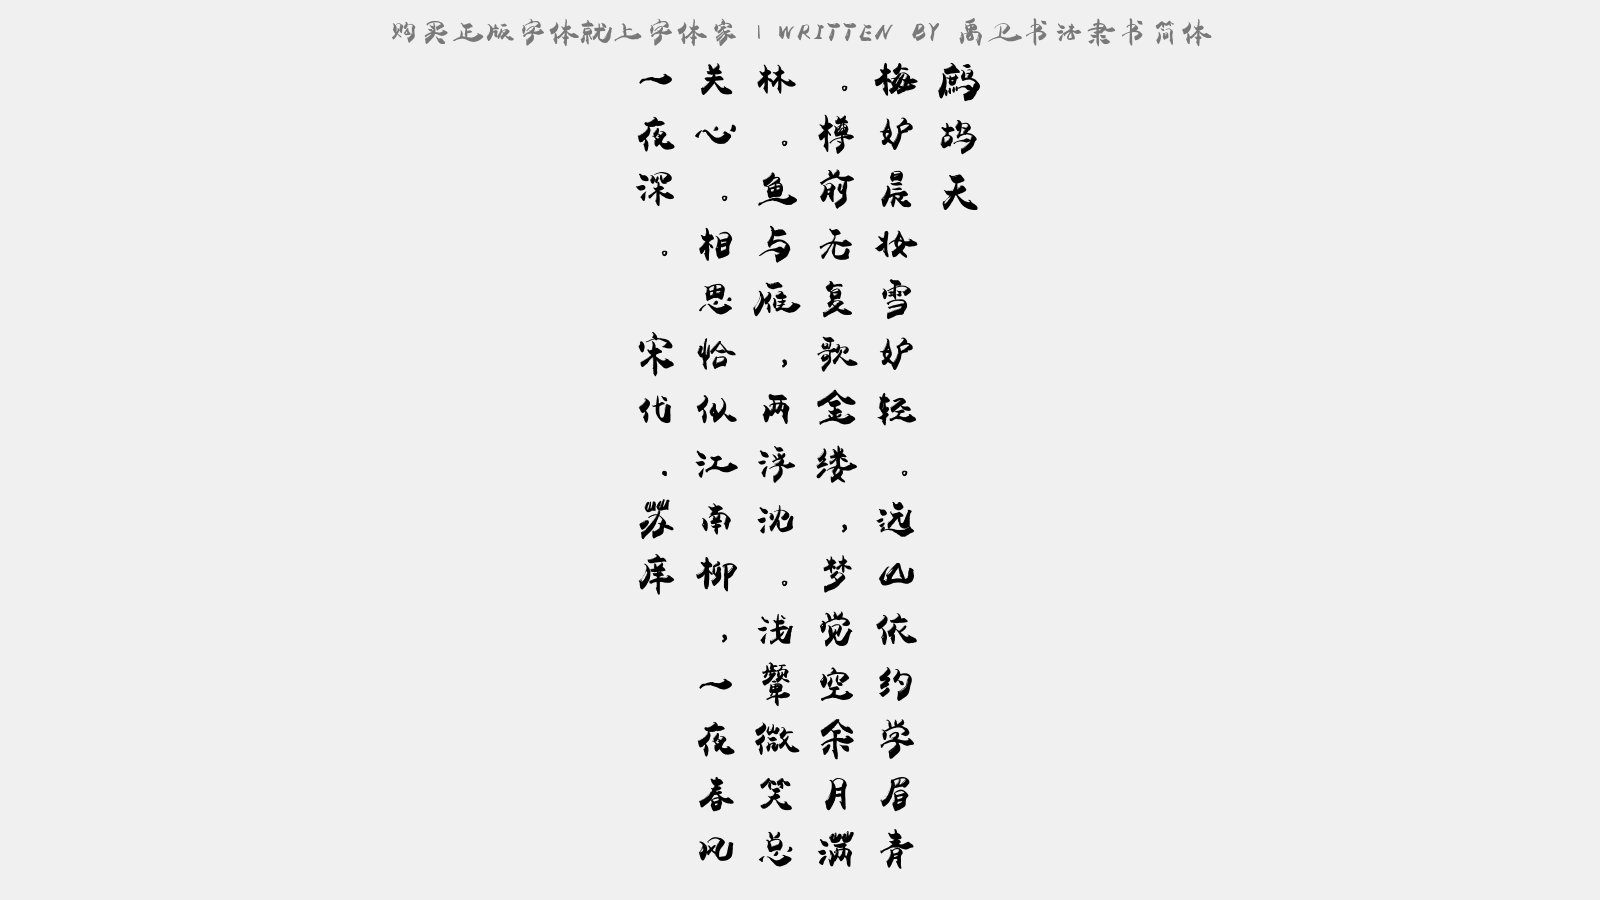 购买正版字体就上字体家 | WRITTEN BY 禹卫书法隶书简体
鹧鸪天
梅妒晨妆雪妒轻。远山依约学眉青
。樽前无复歌金缕，梦觉空余月满
林。鱼与雁，两浮沈。浅颦微笑总
关心。相思恰似江南柳，一夜春风
一夜深。 宋代.苏庠